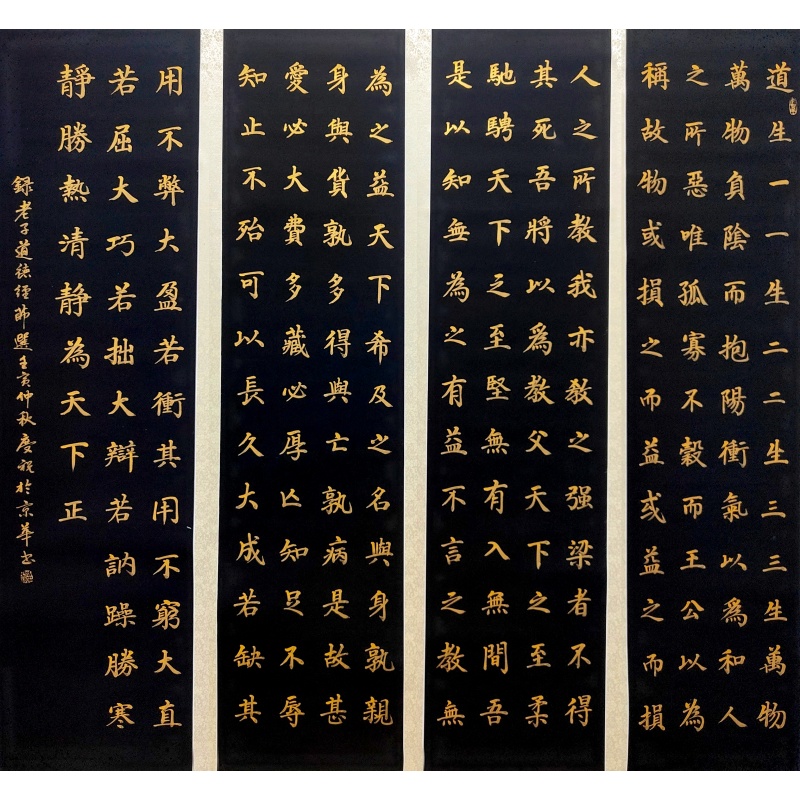 道生一一生二二生三三生萬物
萬物負陰而抱陽衝氣以爲和人
之所惡唯孤寡不穀而王公以為
稱故物或損之而益或益之而損
人之所教我亦教之强梁者不得
其死吾將以爲教父天下之至柔
馳騁天下之至堅無有入無間吾
是以知無為之有益不言之教無
為之益天下希及之名與身孰親
身與貨孰多得與亡孰病是故甚
愛必大費多藏必厚亡知足不辱
知止不殆可以長久大成若缺其
用不弊大盈若衝其用不窮大直
若屈大巧若拙大辯若訥躁勝寒
靜勝熱清靜為天下正
錄老子道德經節選壬寅仲秋慶祝於京華書